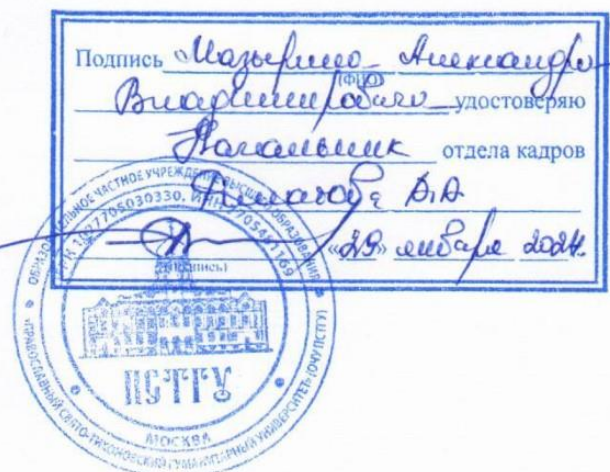 Подпись Мазырина Александра
(ФИО)
Владимировича удостоверяю
Начальник отдела кадров
(подпись)
«29» января 2024г.
ОБРАЗОВАТЕЛЬНОЕ ЧАСТНОЕ УЧРЕЖДЕНИЕ ВЫСШЕГО ОБРАЗОВАНИЯ
«ПРАВОСЛАВНЫЙ СВЯТО-ТИХОНОВСКИЙ ГУМАНИТАРНЫЙ УНИВЕРСИТЕТ» (ОЧУ ПСТГУ)
ПСТГУ
МОСКВА